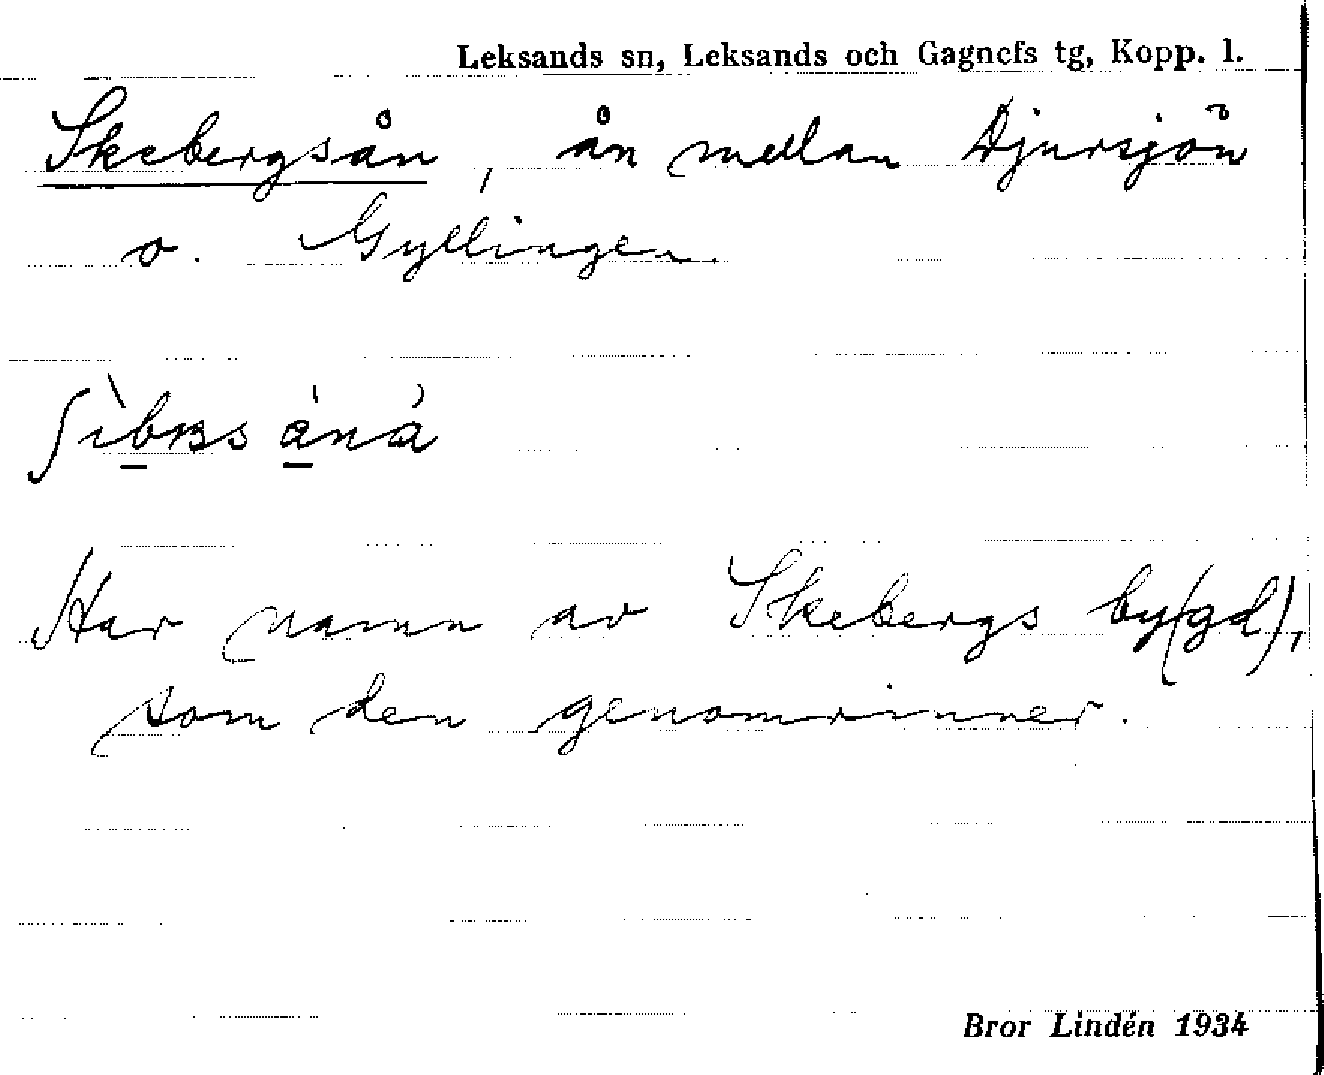 Leksands sn, Leksands och Gagnefs tg, Kopp. l.
Skebergsån, ån mellan Djursjön
o. Gyllingen.
Har namn av Skebergs by(gd),
som den genomrinner.
Bror Lindén 1934